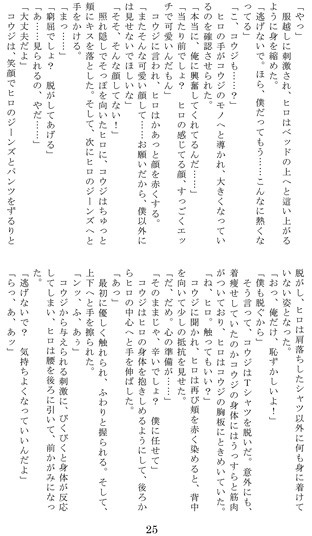 「やっ」
服越しに刺激され、ヒロはベッドの上へと這い上がる
ように身を縮めた。
「逃げないで。ほら、僕だってもう……こんなに熱くな
ってる」
「こ、コウジも……？」
ヒロの手がコウジのモノへと導かれ、大きくなってい
るのを確認させられた。
「本当に、俺に興奮してくれてるんだ……」
「当たり前でしょ？　ヒロの感じてる顔、すっごくエッ
チで可愛いんだもん」
コウジに言われ、ヒロはかあっと顔を赤くする。
「またそんな可愛い顔して……お願いだから、僕以外に
は見せないでほしいな」
「そ、そんな顔してない！」
照れ隠しでそっぽを向いたヒロに、コウジはちゅっと
頬にキスを落とした。そして、次にヒロのジーンズへと
手をかける。
「まっ……」
「窮屈でしょ？　脱がしてあげる」
「あ……見られるの、やだ……」
「大丈夫だよ」
コウジは、笑顔でヒロのジーンズとパンツをずるりと
脱がし、ヒロは肩落ちしたシャツ以外に何も身に着けて
いない姿となった。
「おっ、俺だけ、恥ずかしいよ！」
「僕も脱ぐから」
そう言って、コウジはTシャツを脱いだ。意外にも、
着痩せしていたのかコウジの身体にはうっすらと筋肉
がついており、ヒロはコウジの胸板にときめいていた。
「ね、ヒロ。触ってもいい？」
コウジに聞かれ、ヒロは再び頬を赤く染めると、背中
を向けて少しの抵抗を見せた。
「だ、だめ。心の準備が……」
「そのままじゃ、辛いでしょ？　僕に任せて」
コウジはヒロの身体を抱きしめるようにして、後ろか
らヒロの中心へと手を伸ばした。
「あっ」
最初に優しく触れられ、ふわりと握られる。そして、
上下へと手を擦られた。
「ンッ、ふ、ぁぅ」
コウジから与えられる刺激に、びくびくと身体が反応
してしまい、ヒロは腰を後ろに引いて、前かがみになっ
た。
「逃げないで？　気持ちよくなっていいんだよ」
「らっ、あ、あッ」
25